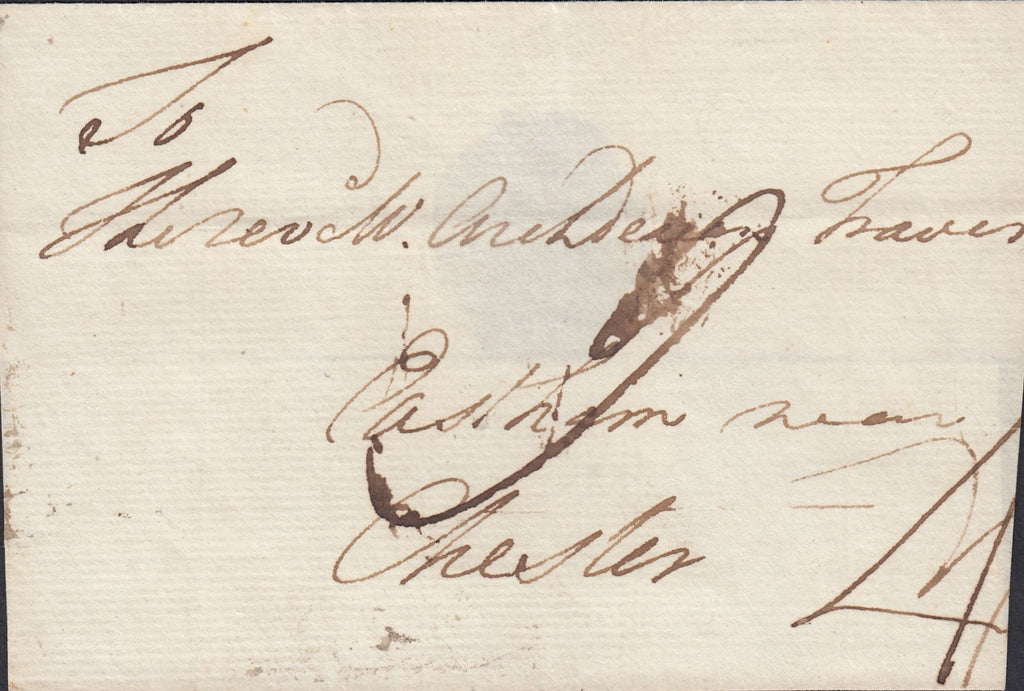 To
The revd Mr. ArchDeacon Traver
Eastham near
Chester
4